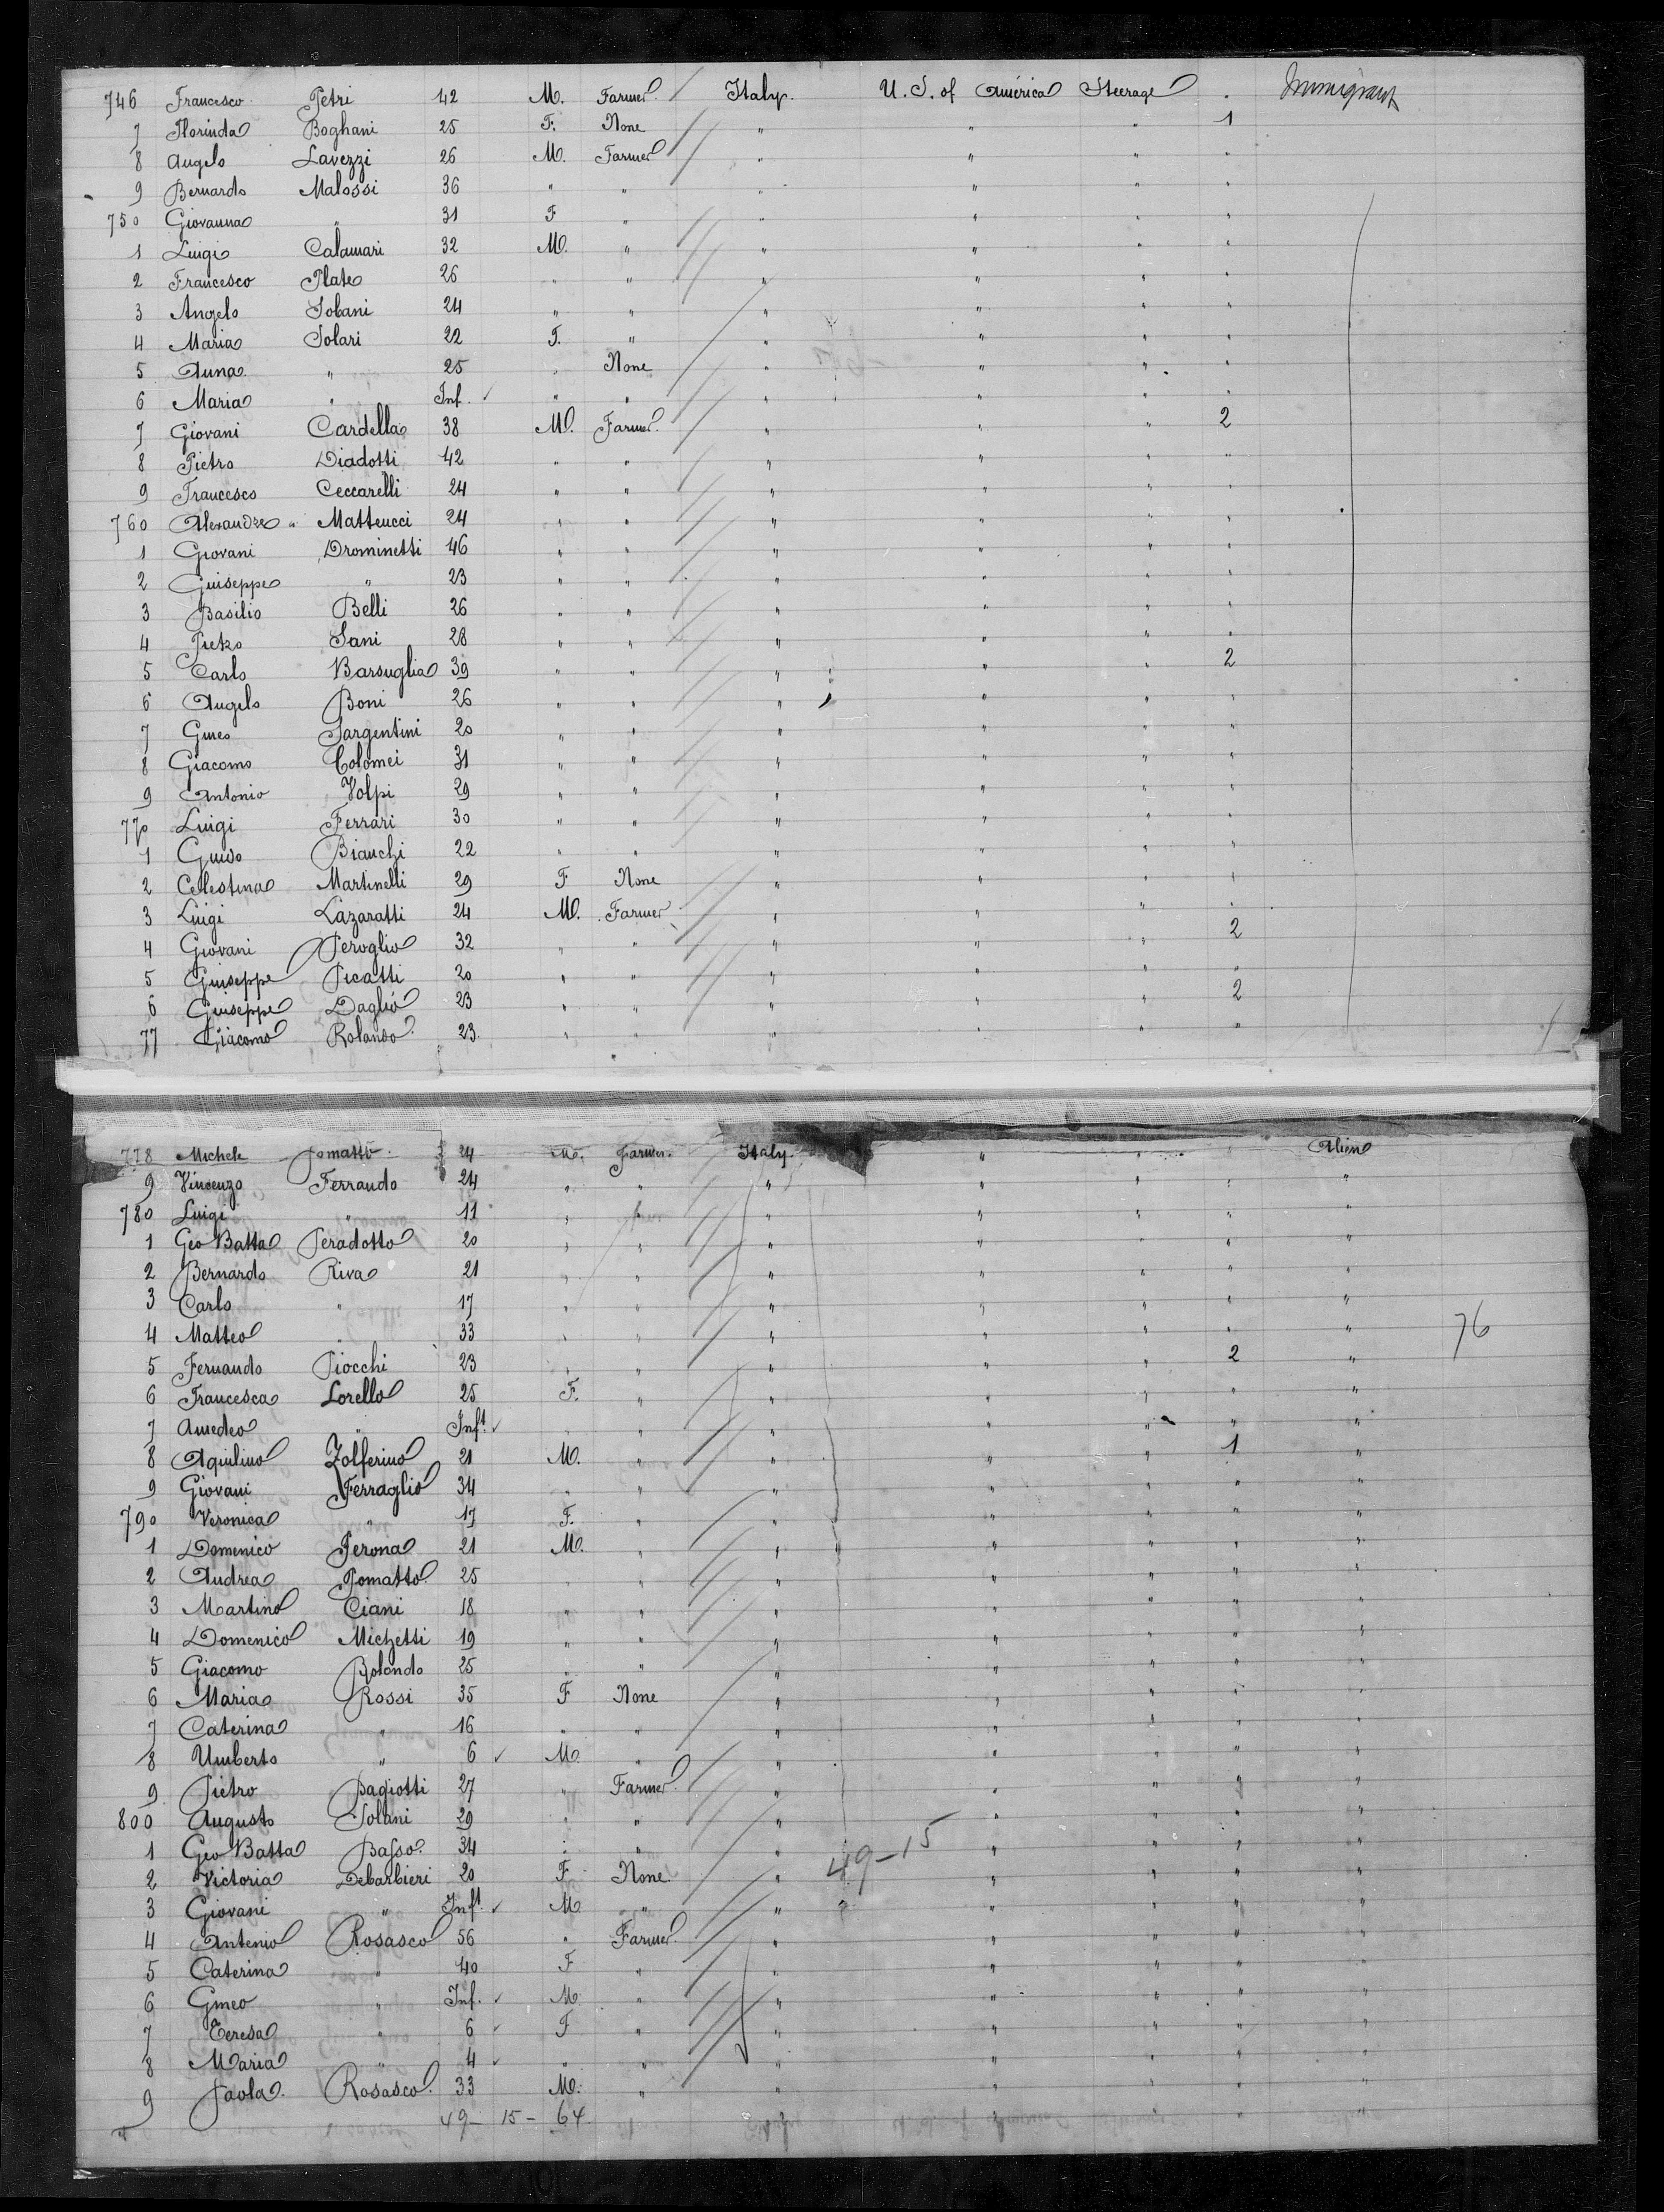 746 Francesco Petri 42 M. Farmer Italy. U. S. of América Steerage " Immigrant
7 Florinda Boghani 25 F. None " " " 1
8 Angelo Lavezzi 26 M. Farmer " " " "
9 Bernardo Malossi 36 " " " " " "
750 Giovanna " 31 F " " " " "
1 Luigi Calamari 32 M. " " " " "
2 Francesco Plate 26 " " " " " "
3 Angelo Solani 24 " " " " " "
4 Maria Solari 22 F. " " " " "
5 Anna " 25 " None " " " "
6 Maria " Inf. ✓ " " " " " "
7 Giovani Cardella 38 M. Farmer " " " 2
8 Pietro Diadotti 42 " " " " " "
9 Francesco Ceccarelli 24 " " " " " "
760 Alexandre " Matteucci 24 " " " " " "
1 Giovani Drominetti 46 " " " " " "
2 Guiseppe " 23 " " " " " "
3 Basilio Belli 26 " " " " " "
4 Pietro Sani 28 " " " " " "
5 Carlo Barsuglia 39 " " " " " 2
6 Angelo Boni 26 " " " " " "
7 Gineo Sargentini 20 " " " " " "
8 Giacomo Colomei 31 " " " " " "
9 Antonio Volpi 29 " " " " " "
770 Luigi Ferrari 30 " " " " " "
1 Guido Bianchi 22 " " " " " "
2 Celestina Martinelli 29 F None " " " "
3 Luigi Lazaratti 24 M. Farmer " " " "
4 Giovani Peroglio 32 " " " " " 2
5 Guiseppe Picatti 20 " " " " " "
6 Guiseppe Daglió 23 " " " " " 2
77 Giacomo Rolando 23. " " " " " "
778 Michele Pomatto 24 M. Farmer. Italy. " " " Alien
9 Vincenzo Ferrando 24 " " " " " " "
780 Luigi " 11 " " " " " " "
1 Geo Batta Peradotto 20 " " " " " " "
2 Bernardo Riva 21 " " " " " " "
3 Carlo " 17 " " " " " " "
4 Matteo " 33 " " " " " " " 76
5 Fernando Piocchi 23 " " " " " 2 "
6 Francesca Lorello 25 F. " " " " " "
7 Amedeo " Inft ✓ " " " " " " "
8 Aquilino Zolferino 21 M. " " " " 1 "
9 Giovani Ferraglio 34 " " " " " " "
790 Veronica " 17 F. " " " " " "
1 Domenico Perona 21 M. " " " " " "
2 Andrea Pomatto 25 " " " " " " "
3 Martino Ciani 18 " " " " " " "
4 Domenico Michetti 19 " " " " " " "
5 Giacomo Rolando 25 " " " " " " "
6 Maria Rossi 35 F None " " " " "
7 Caterina " 16 " " " " " " "
8 Umberto " 6 ✓ M. " " " " " "
9 Pietro Bagiotti 27 " Farmer " " " " "
800 Augusto Solani 29 " " " " " " "
1 Geo Batta Basso. 34 " " " 49-15 " " " "
2 Victoria Debarbieri 20 F None " " " " "
3 Giovani " Inft ✓ M. " " " " " "
4 Antonio Rosasco 56 " Farmer " " " " "
5 Caterina " 40 F " " " " " "
6 Gineo " Inf. ✓ M. " " " " " "
7 Teresa " 6 ✓ F " " " " " "
8 Maria " 4 ✓ " " " " " " "
9 Paola. Rosasco. 33 M. " " " " " "
49- 15 - 64.